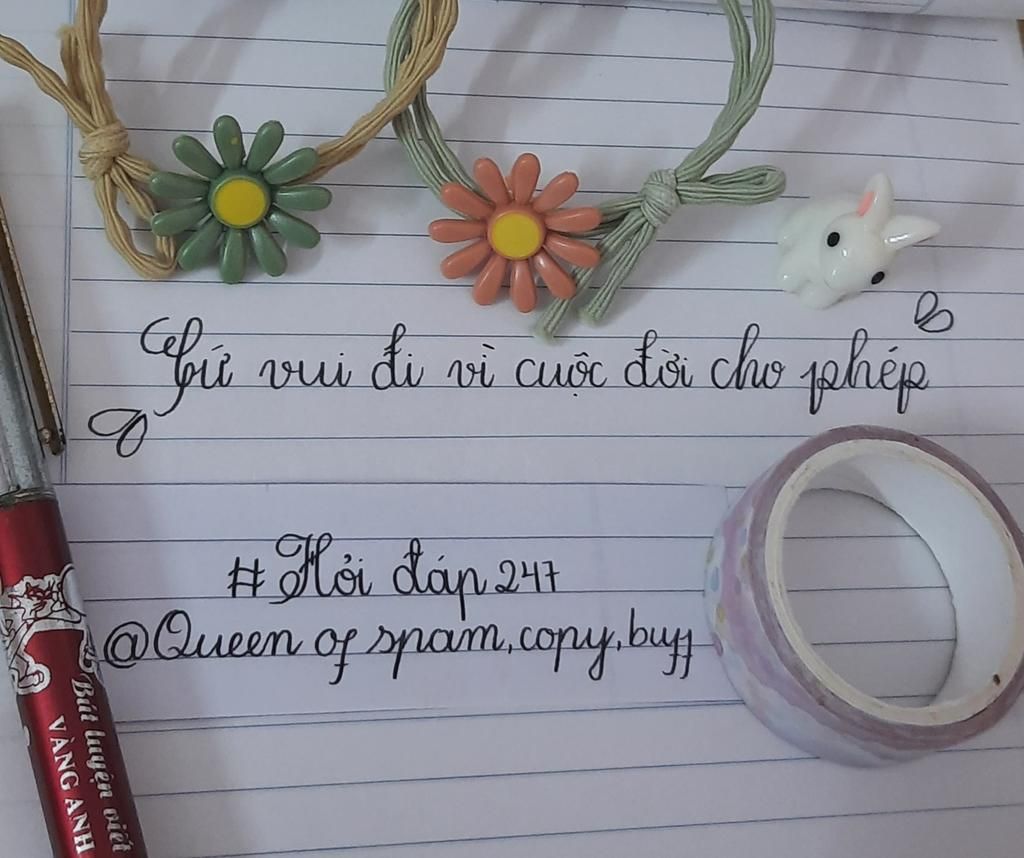 Cứ vui đi vì cuộc đời cho phép
#Hỏi đáp 247
@Queen of spam, copy, buff
Bút luyện viết
VÀNG ANH